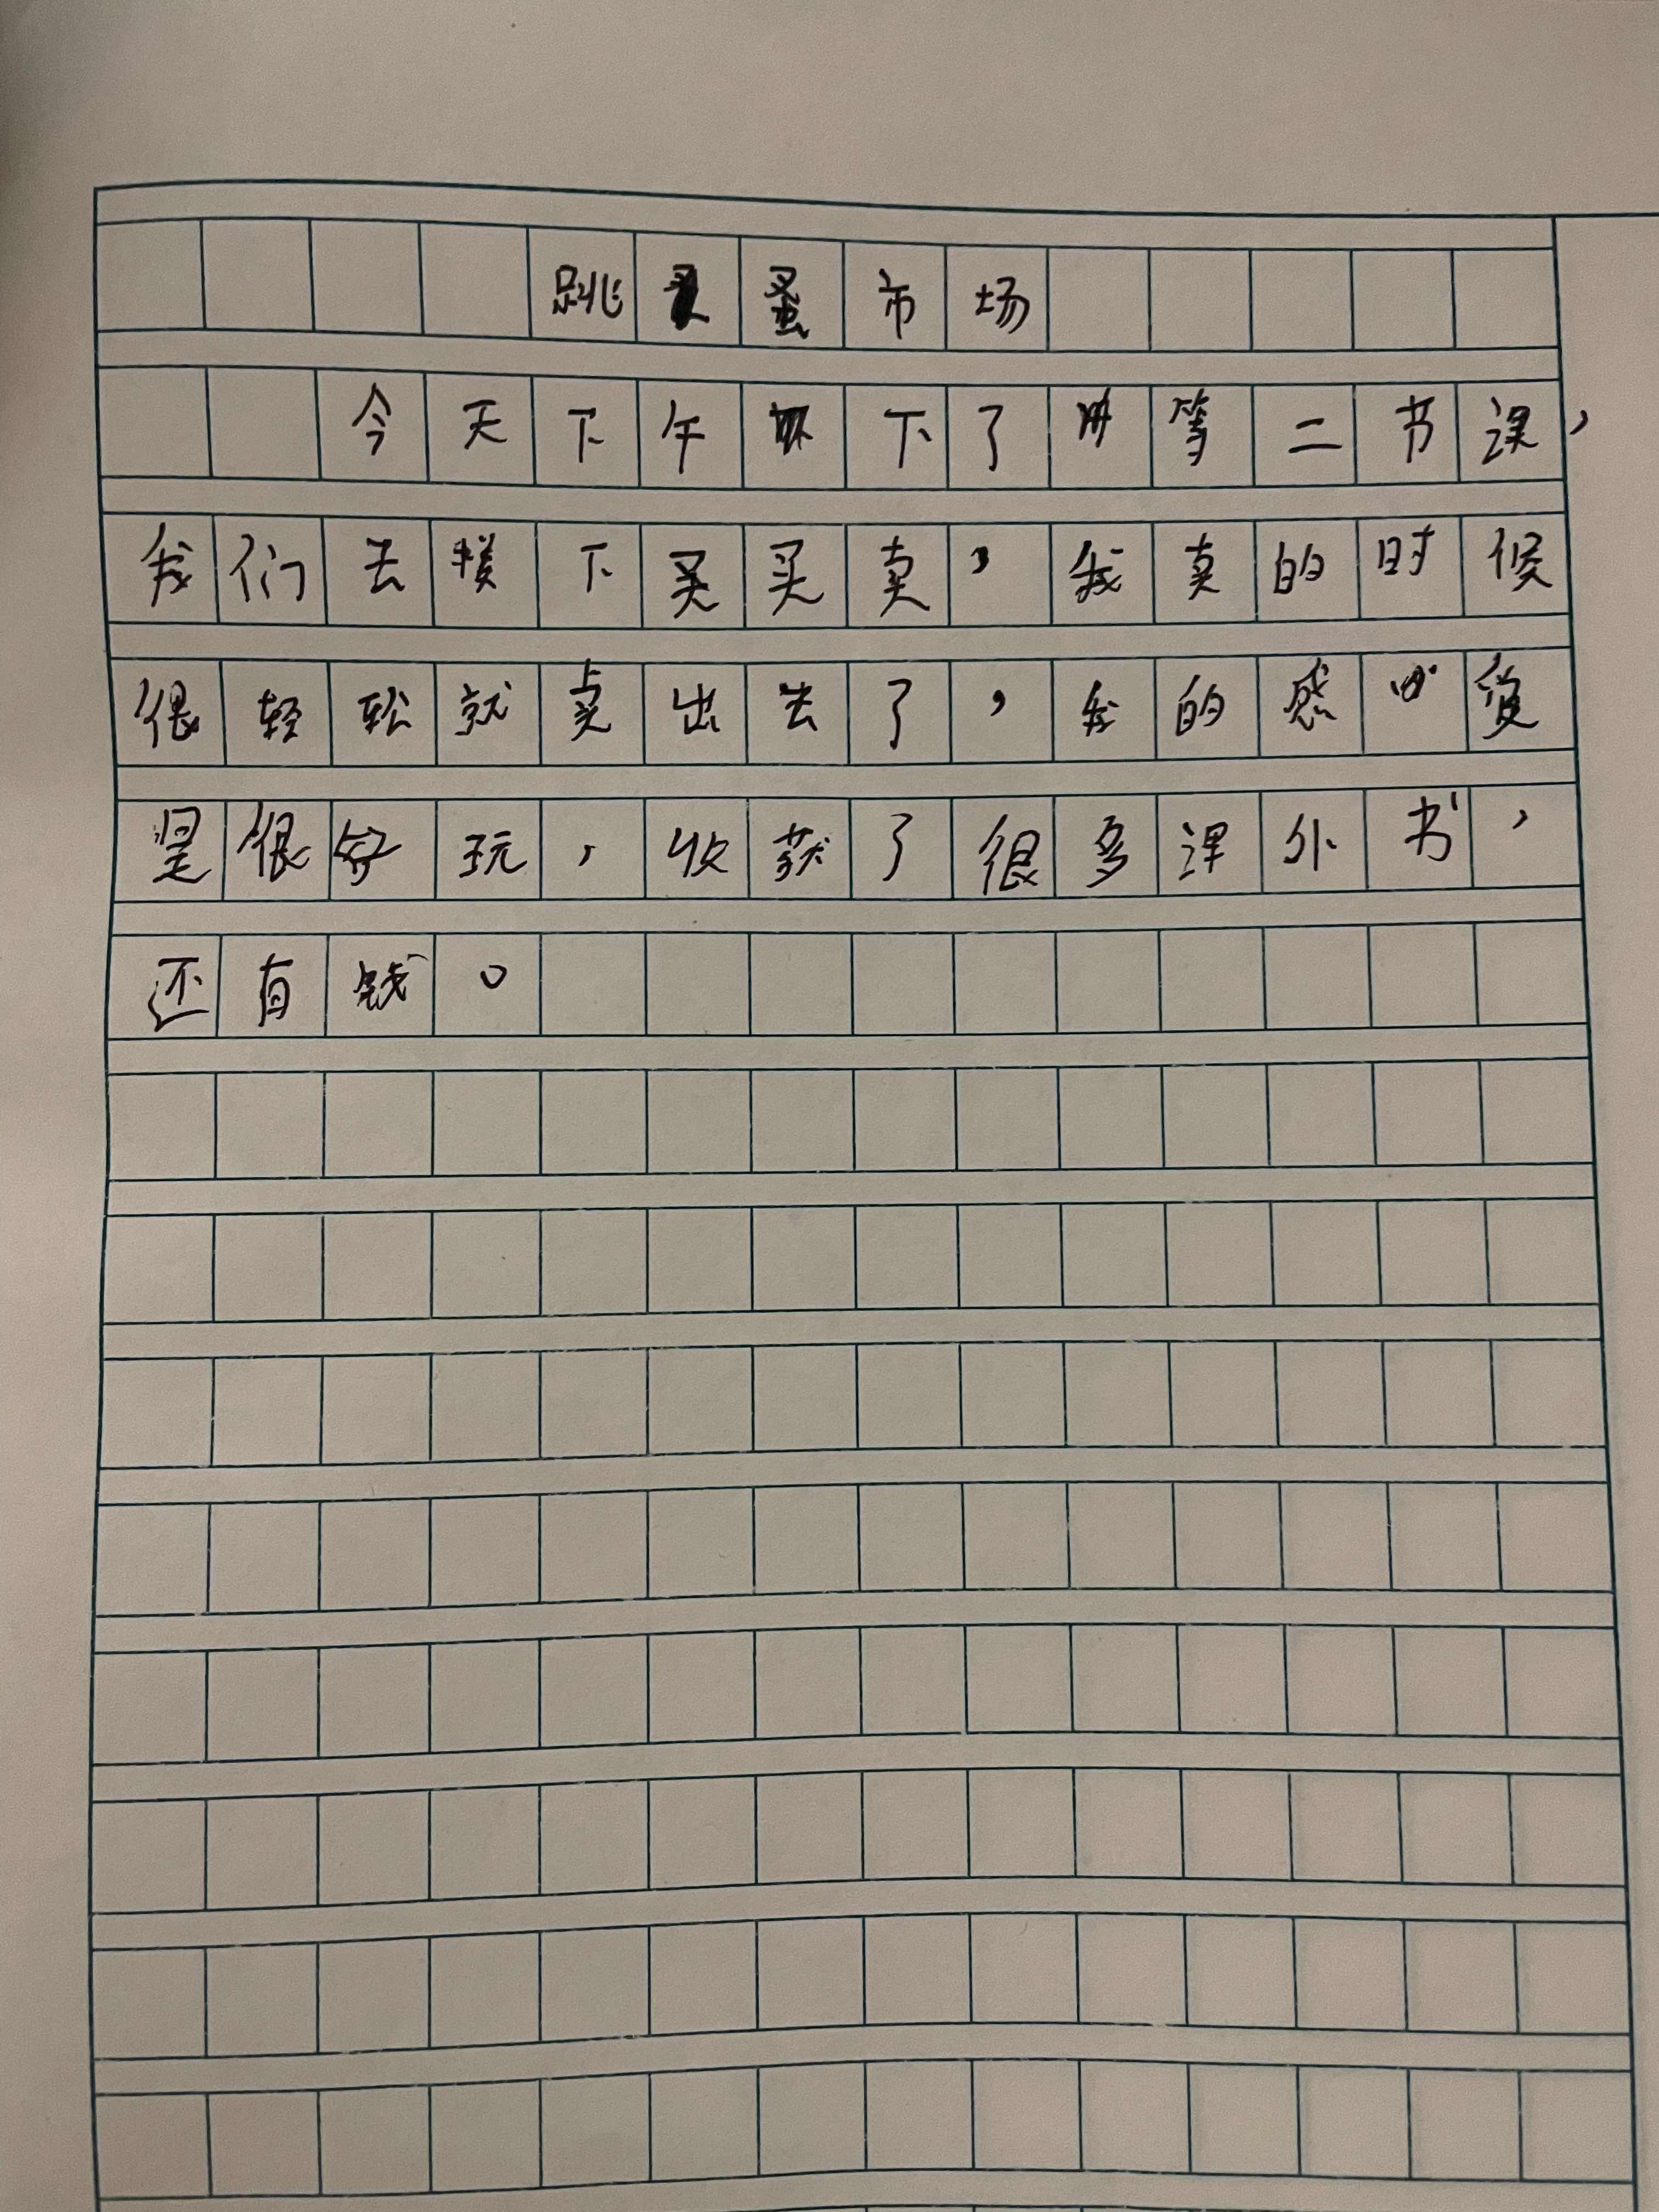 跳蚤市场
今天下午下了等二节课，
我们去楼下买买卖，我卖的时候
很轻松就卖出去了，我的感受
是很好玩，收获了很多课外书，
还有钱。